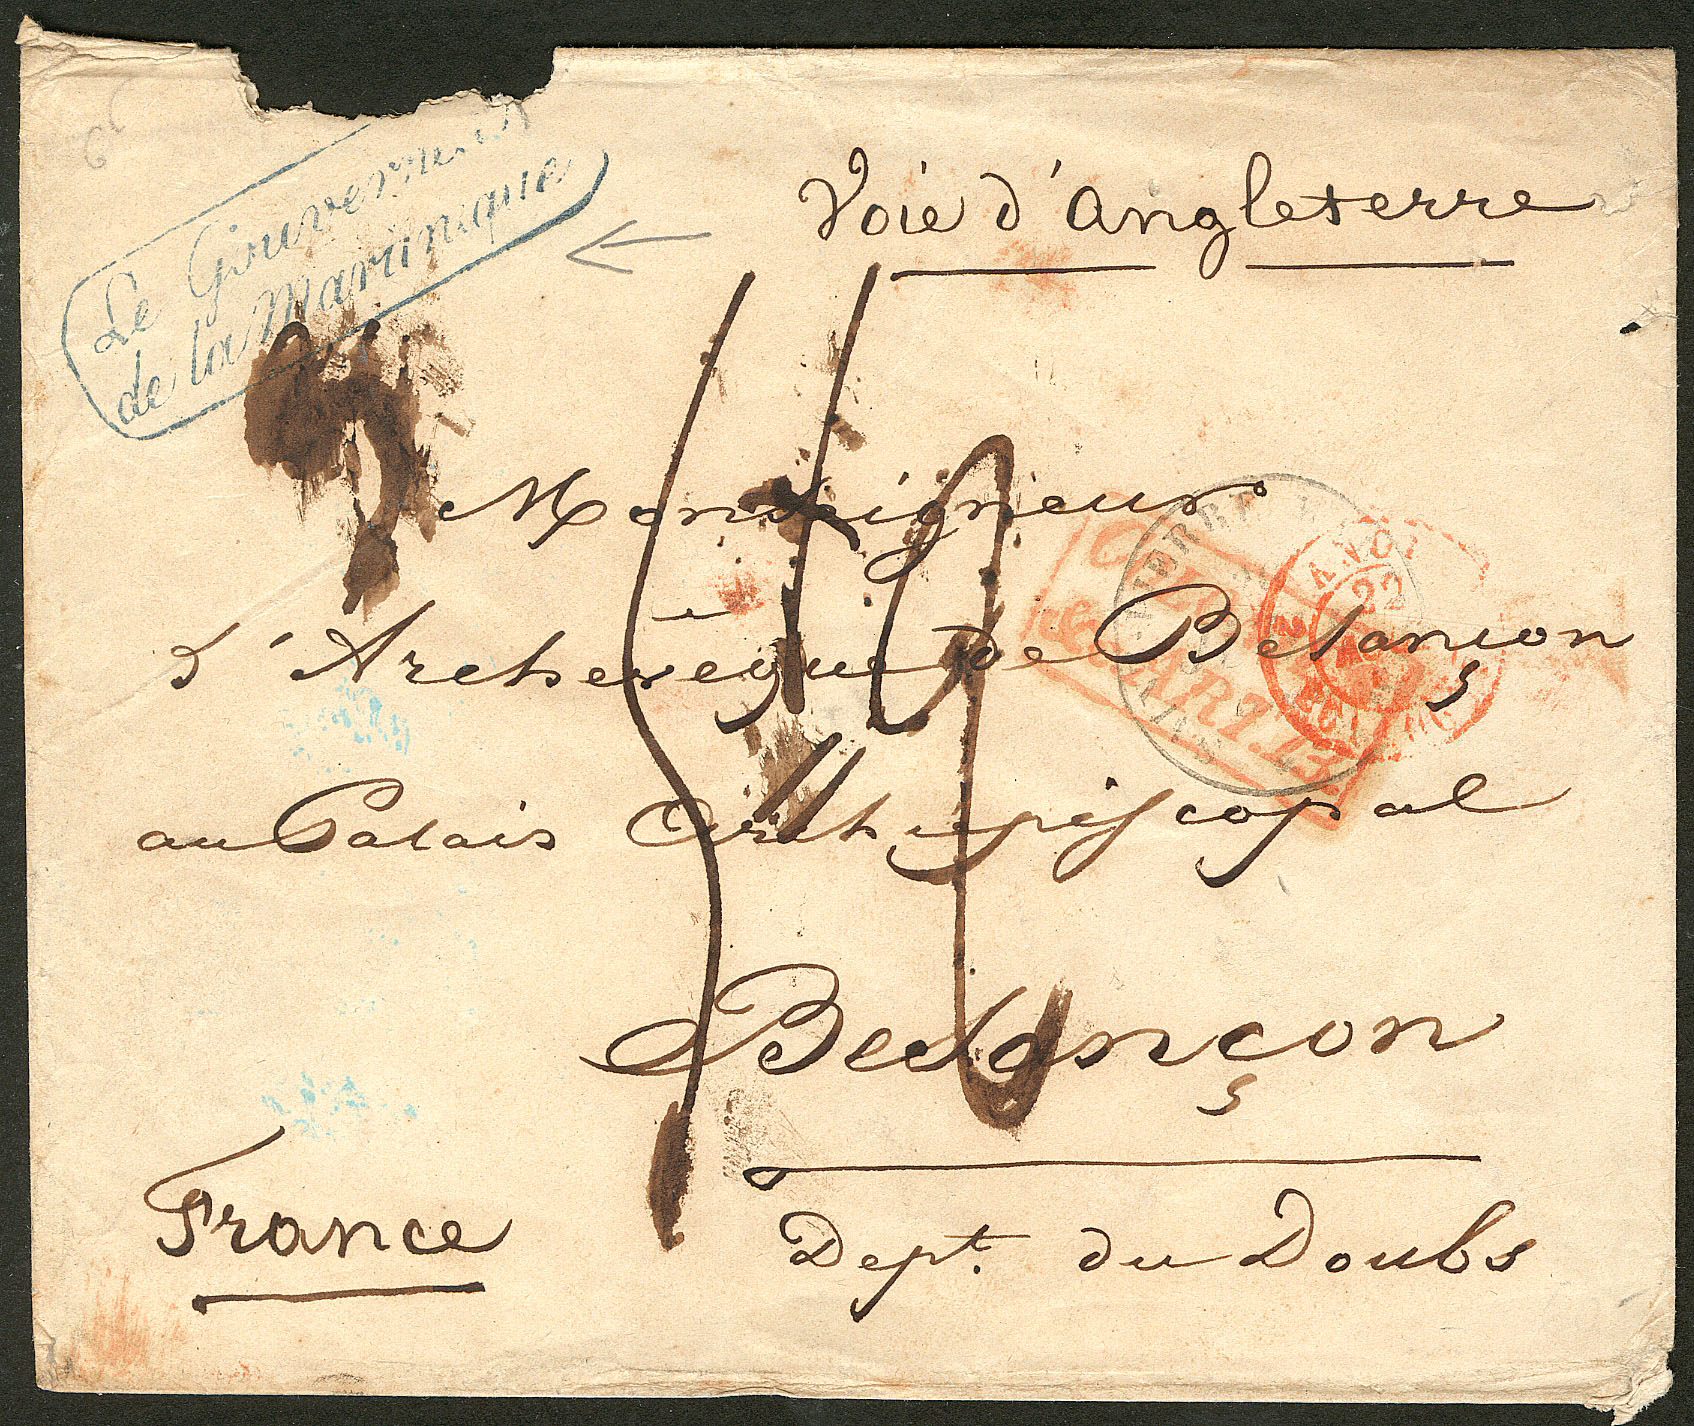 Le Gouverneur
de la Martinique
Voie d'Angleterre
Monseigneur
L'Archevêque de Besançon
au Palais Archiépiscopal
Besançon
France
Dept. du Doubs
COLONIES
&c. ART. 13
ANGL.
22